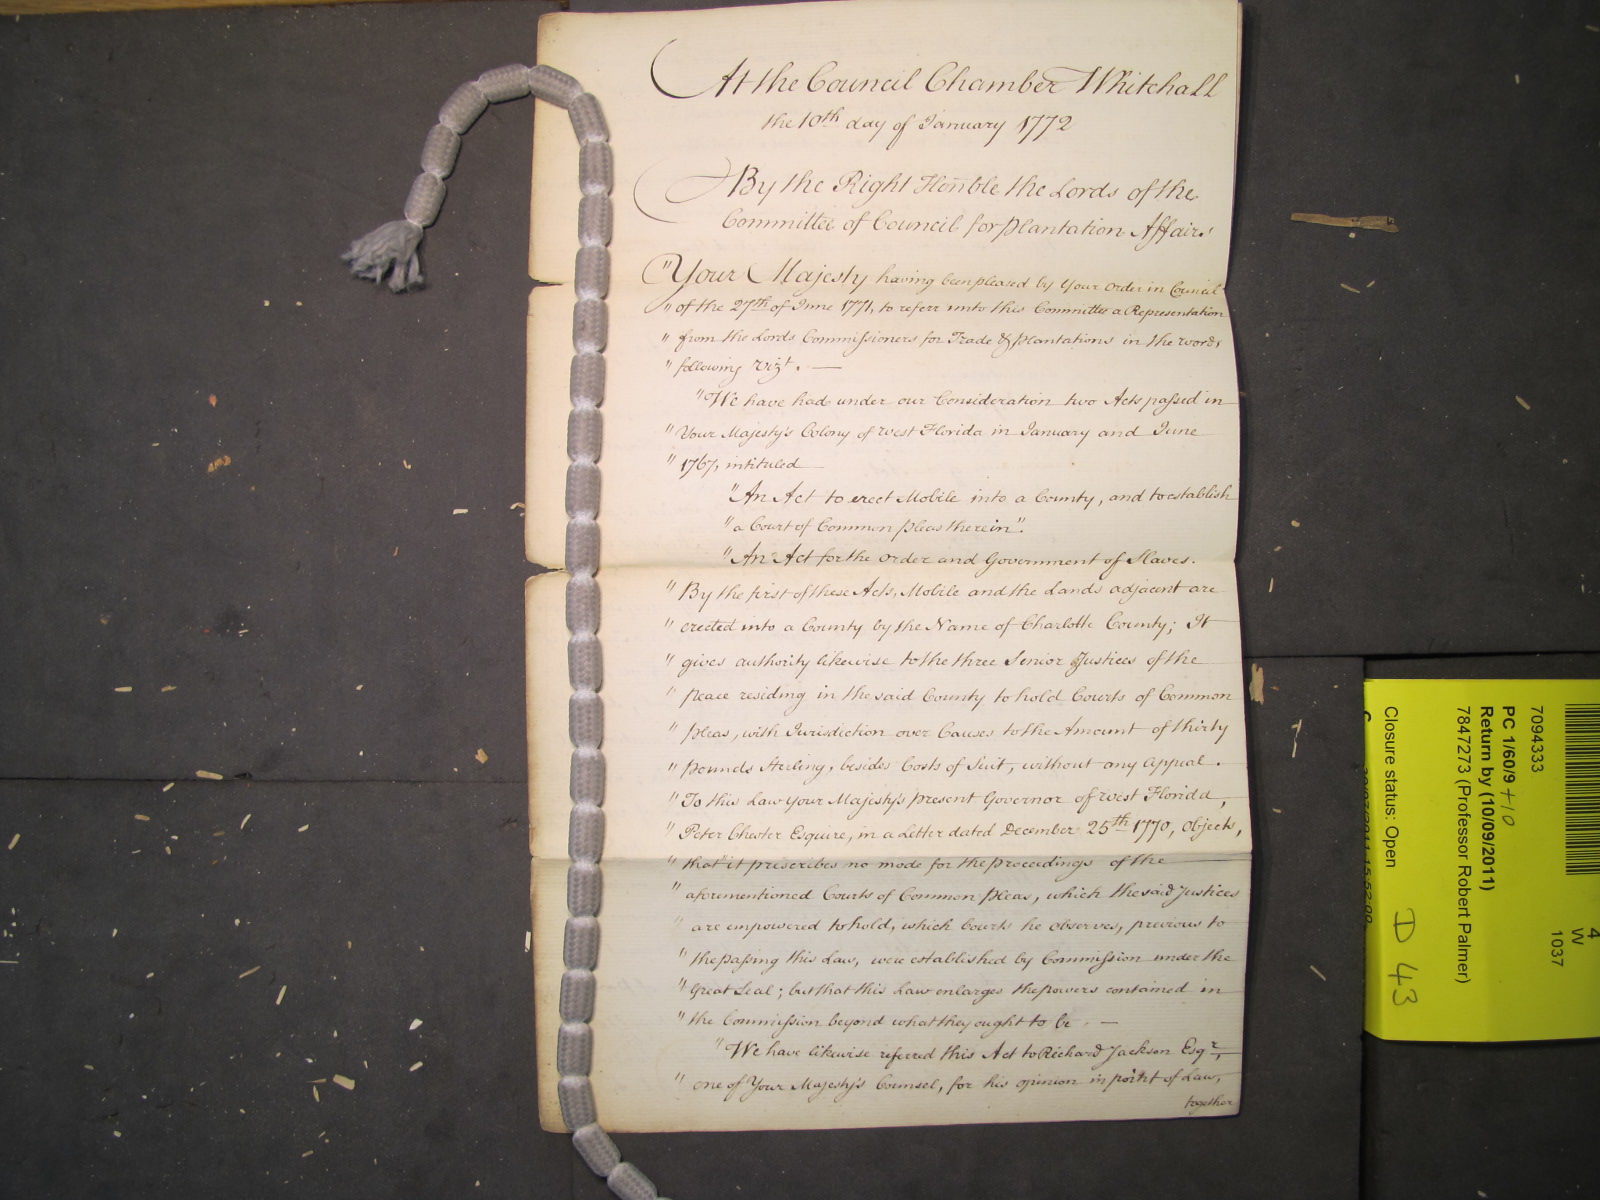 At the Council Chamber Whitehall
the 10th day of January 1772
By the Right Honble the Lords of the
Committee of Council for Plantation Affairs
"Your Majesty having been pleased by Your Order in Council
"of the 27th of June 1771, to referr unto this Committee a Representation
"from the Lords Commissioners for Trade & Plantations in the words
"following Vizt. —
"We have had under our Consideration two Acts passed in
"Your Majesty's Colony of West Florida in January and June
"1767, intituled
"An Act to erect Mobile into a County, and to establish
"a Court of Common Pleas therein".
"An Act for the Order and Government of Slaves.
"By the first of these Acts, Mobile and the Lands adjacent are
"erected into a County by the Name of Charlotte County; It
"gives authority likewise to the three Senior Justices of the
"Peace residing in the said County to hold Courts of Common
"Pleas, with Jurisdiction over Causes to the Amount of thirty
"Pounds Sterling, besides Costs of Suit, without any Appeal.
"To this Law Your Majesty's present Governor of West Florida,
"Peter Chester Esquire, in a Letter dated December 25th 1770, Objects,
"that "it prescribes no mode for the proceedings of the
"aforementioned Courts of Common Pleas, which the said Justices
"are empowered to hold, which Courts he observes, previous to
"the passing this Law, were established by Commission under the
"Great Seal; but that this Law enlarges the powers contained in
"the Commission beyond what they ought to be. —
"We have likewise referred this Act to Richard Jackson Esqr.,
"one of Your Majesty's Counsel, for his opinion in point of Law,
together
4
W
1037
7094333
PC 1/60/9 +10
Return by (10/09/2011)
7847273 (Professor Robert Palmer)
Closure status: Open
D 43